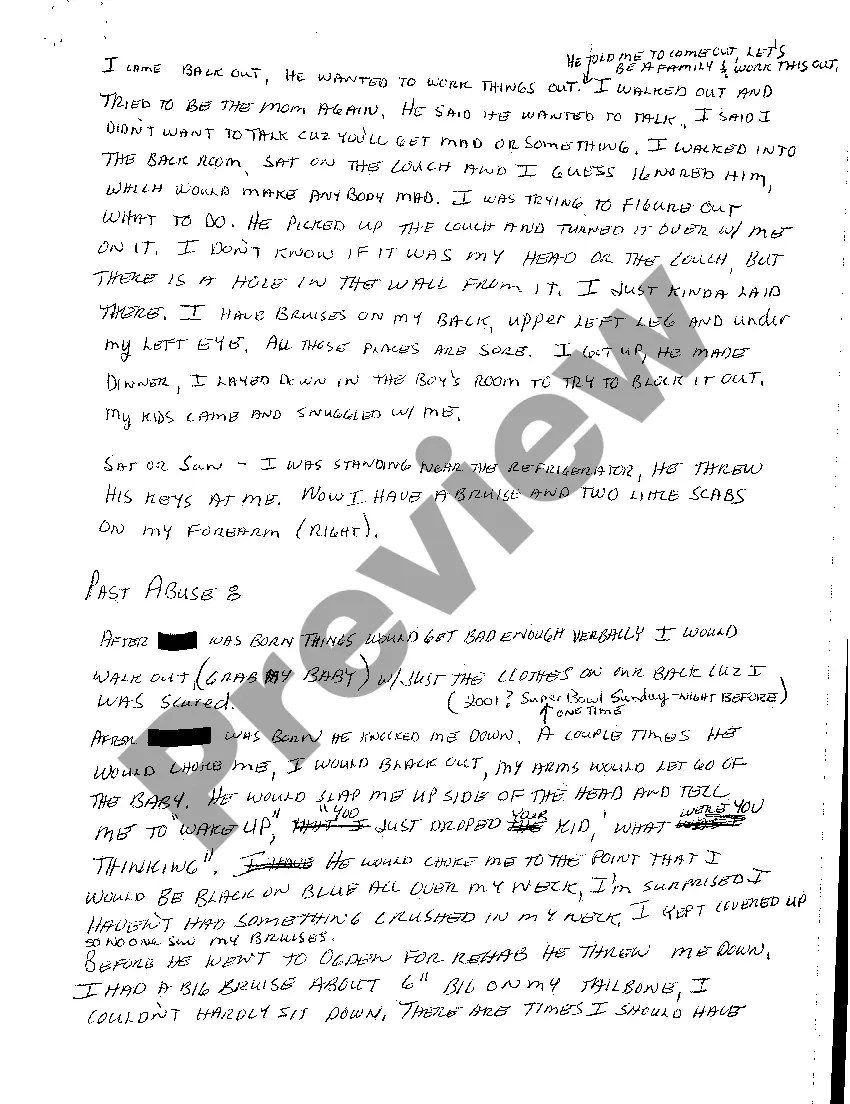 He told me to come out, let's
be a family & work this out.
I came back out, he wanted to work things out. I walked out and
tried to be the mom again. He said he wanted to talk, I said I
didn't want to talk cuz you'll get mad or something. I walked into
the back room, sat on the couch and I guess ignored him,
which would make anybody mad. I was trying to figure out
what to do. He picked up the couch and turned it over w/ me
on it. I don't know if it was my head or the couch, but
there is a hole in the wall from it. I just kinda laid
there. I have bruises on my back, upper left leg and under
my left eye. All those places are sore. I got up, he made
dinner, I layed down in the boy's room to try to block it out.
My kids came and snuggled w/ me.
Sat or Sun - I was standing near the refrigerator, he threw
his keys at me. Now I have a bruise and two little scabs
on my forearm (right).
Past Abuse:
After was born things would get bad enough verbally I would
walk out, (grab my baby) w/ just the clothes on our back cuz I
was scared. (2001? Super Bowl Sunday - night before)
↑ one time
After was born he knocked me down. A couple times he
would choke me, I would black out, my arms would let go of
the baby. He would slap me up side of the head and tell
me to "wake up", "you just droped your kid, what were you
thinking". He would choke me to the point that I
would be black on blue all over my neck, I'm surprised I
haven't had something crushed in my neck. I kept covered up
so no one saw my bruises.
Before he went to Ogden for rehab he threw me down,
I had a big bruise about 6" big on my tailbone, I
couldn't hardly sit down. There are times I should have
Preview